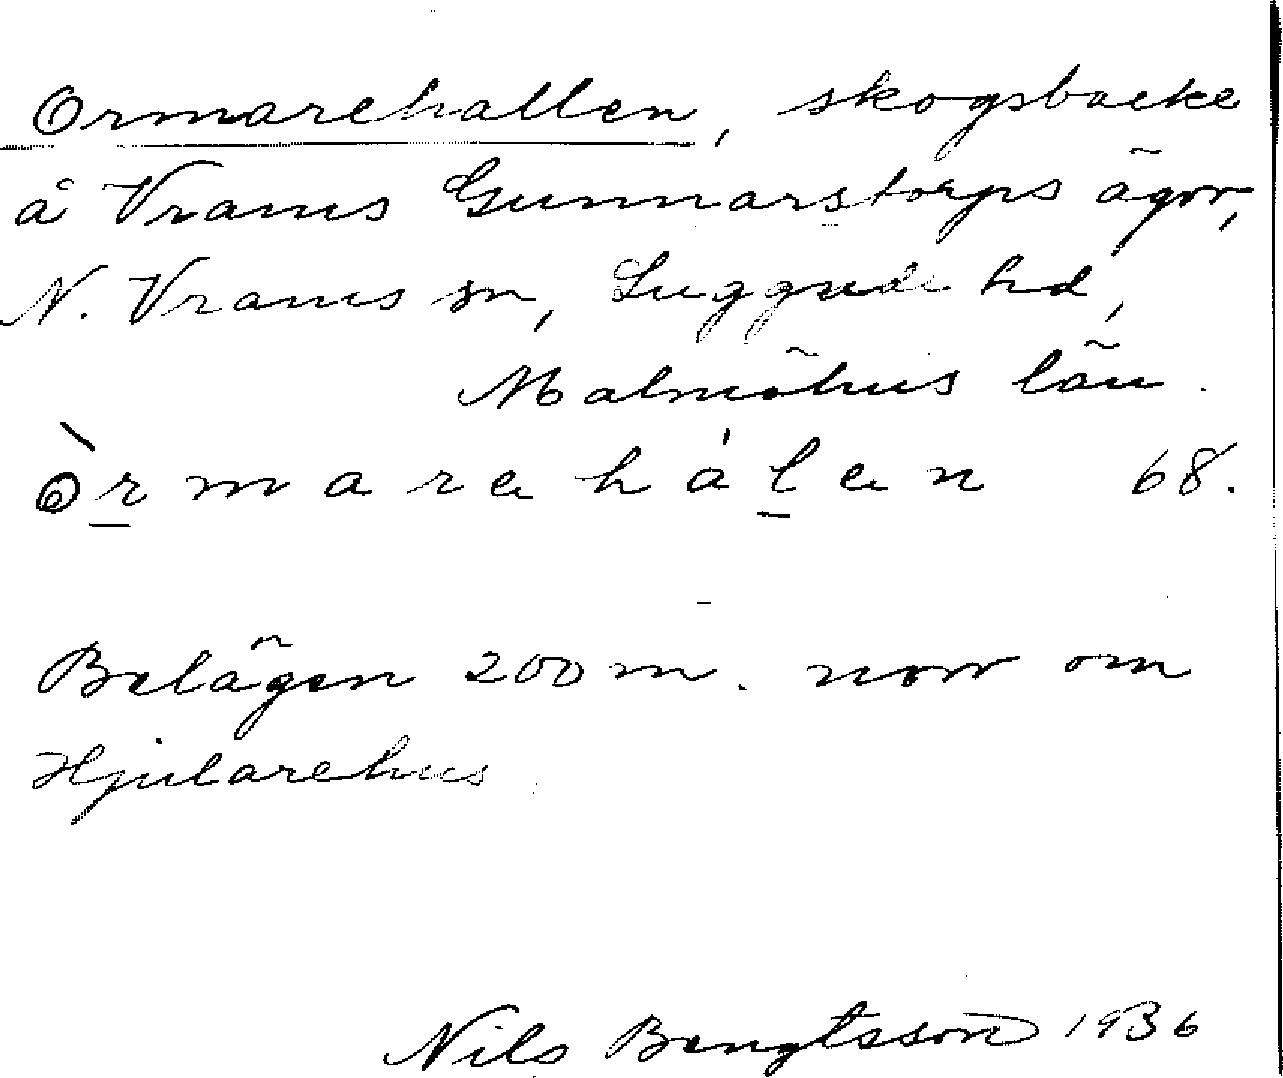 Ormarehallen, skogsbacke
å Vrams Gunnarstorps ägor,
N. Vrams sn, Luggude hd,
Malmöhus län.
òrmarehálen 68.
Belägen 200 m. norr om
Hjularehus
Nils Bengtsson 1936